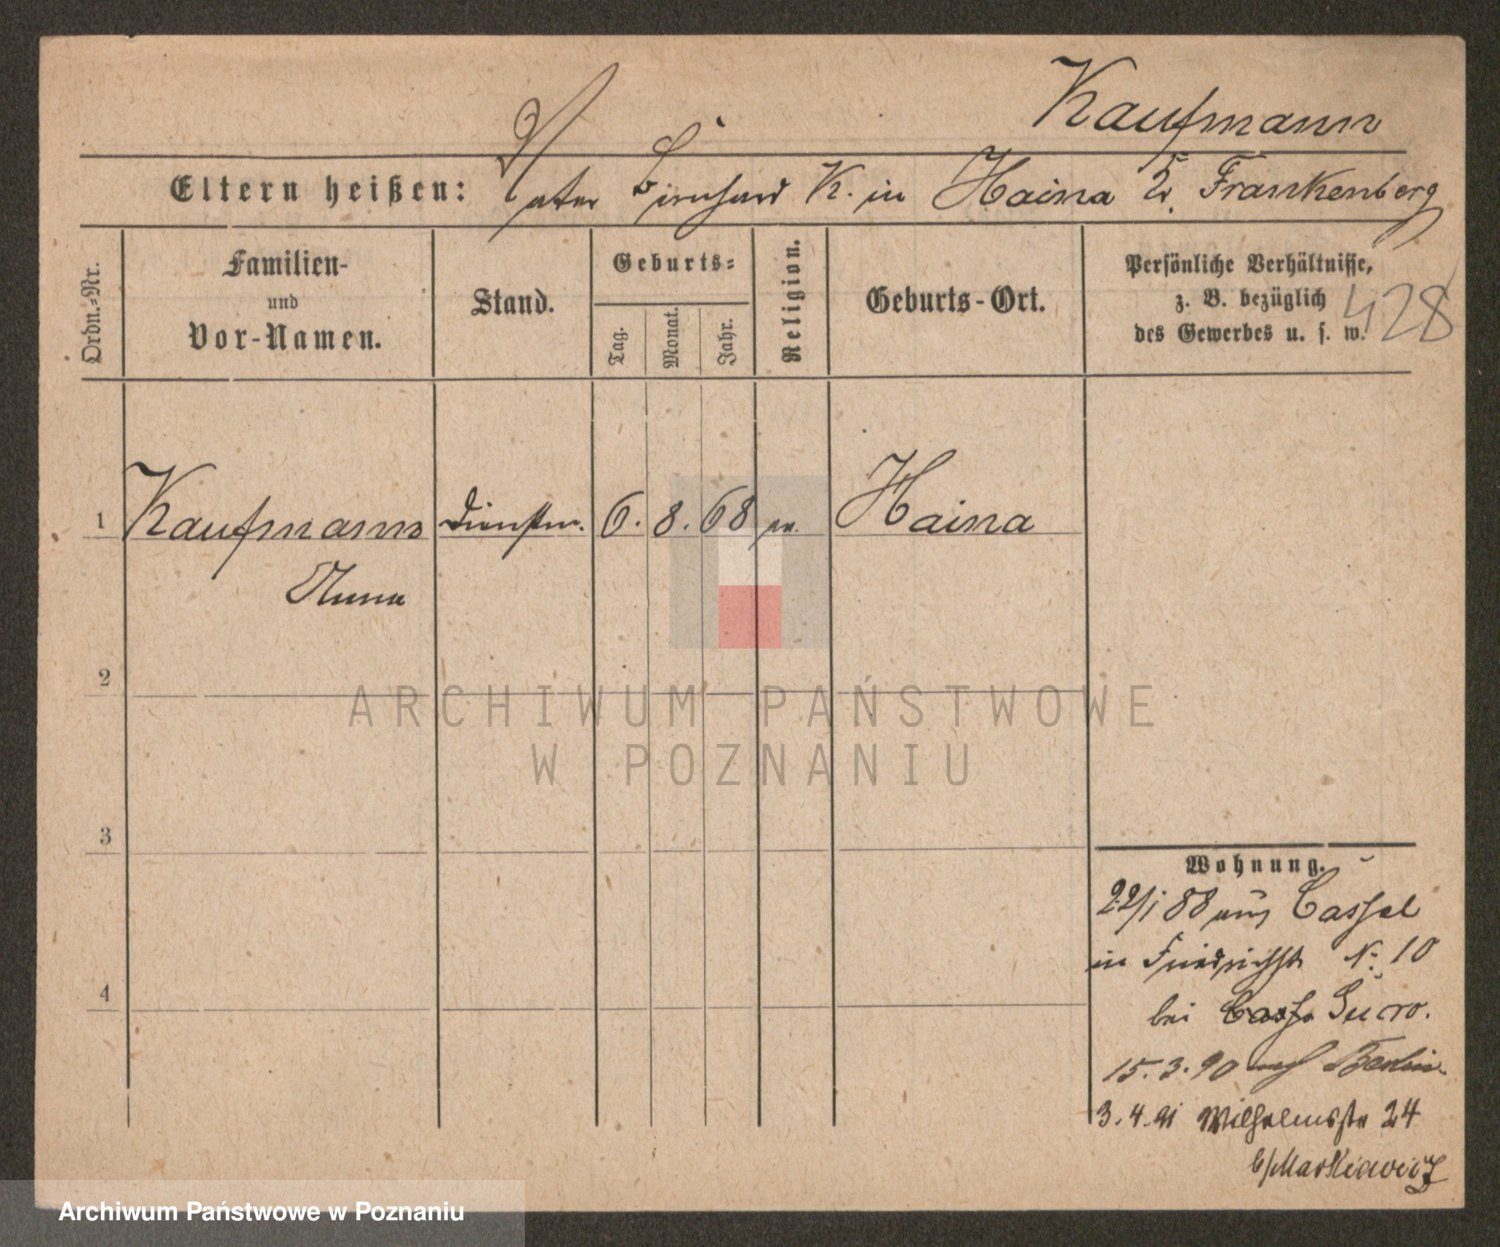 Kaufmann
Eltern heißen: Vater Bernhard K. in Haina Kr. Frankenberg
Ordn.-Nr.
Familien-
und
Vor-Namen.
Stand.
Geburts-
Tag.
Monat.
Jahr.
Religion.
Geburts-Ort.
Persönliche Verhältnisse,
z. B. bezüglich
des Gewerbes u. s. w.
428
1 Kaufmann Dienstm. 6. 8. 68 ev. Haina
Anna
2
3
4
ARCHIWUM PAŃSTWOWE
W POZNANIU
Wohnung.
22/1 88 aus Cassel
in Friedrichstr N: 10
bei
15.3.90 nach Berlin
3.4.91 Wilhelmstr 24
b/Markiewicz
Archiwum Państwowe w Poznaniu